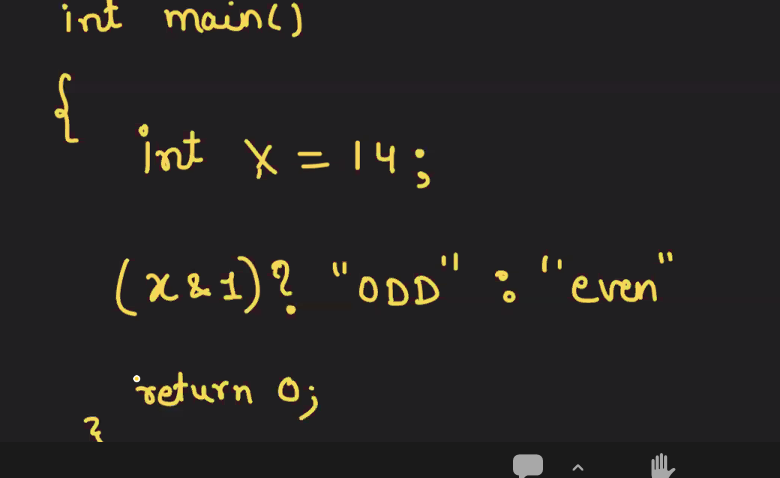 int main()
{
int x = 14;
(x & 1)? "ODD" : "even"
return 0;
}